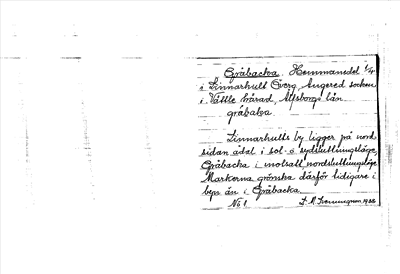 Gråbacka, Hemmansdel 1/4
i Linnarhult Överg, Angered socken
i Vättle härad, Älfsborgs län
gråbaka
Linnarhults by ligger på nord
sidan ådal i sol- o sydsluttningsläge,
Gråbacka i motsatt nordsluttningsläge
Markerna grönska därför tidigare i
byn än i Gråbacka.
No 1